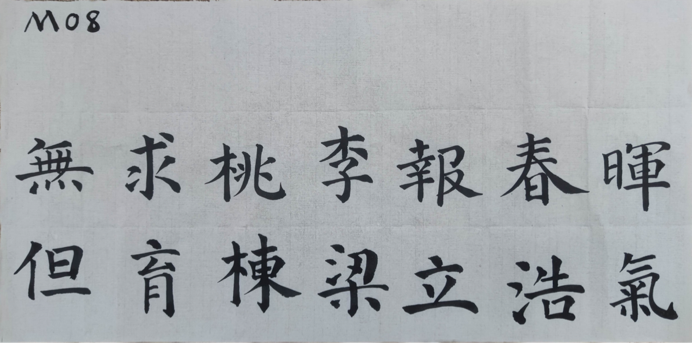 M08
無求桃李報春暉
但育棟梁立浩氣